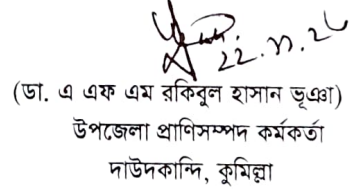 22.11.26
(ডা. এ এফ এম রকিবুল হাসান ভূঞা)
উপজেলা প্রাণিসম্পদ কর্মকর্তা
দাউদকান্দি, কুমিল্লা